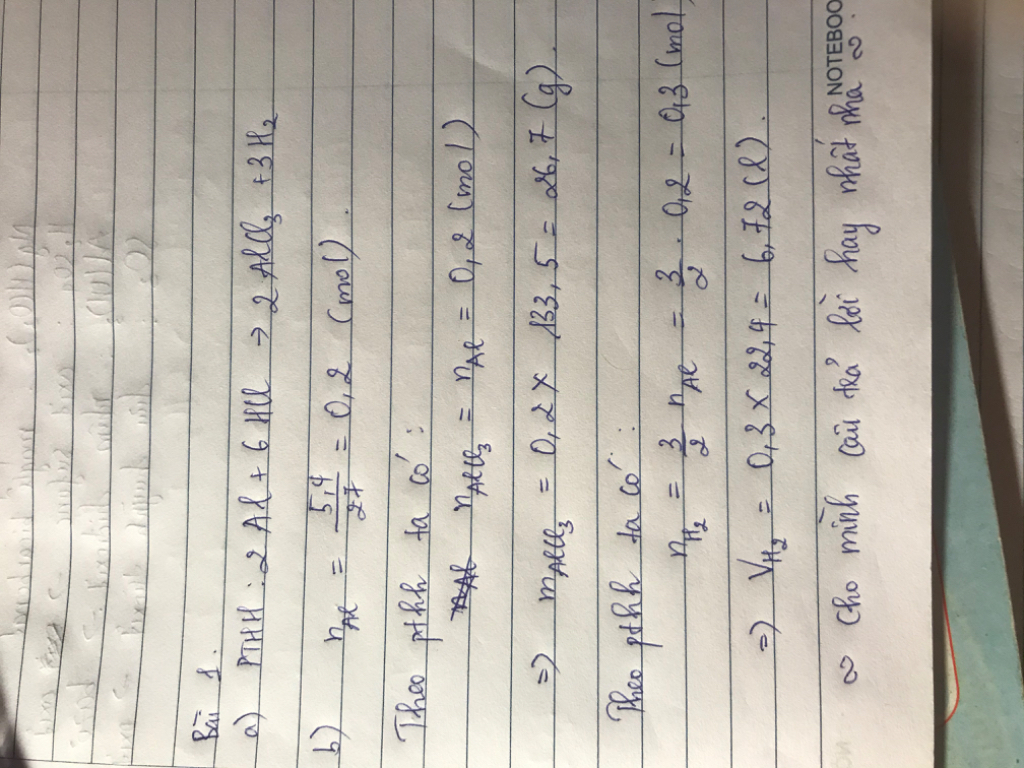 Bài 1.
a) PTHH : 2 Al + 6 HCl → 2 AlCl₃ + 3H₂
b) nAl = 5,4/27 = 0,2 (mol).
Theo pthh ta có :
nAlCl₃ = nAl = 0,2 (mol)
=) mAlCl₃ = 0,2 × 133,5 = 26,7 (g).
Theo pthh ta có :
nH₂ = 3/2 nAl = 3/2 . 0,2 = 0,3 (mol)
=) VH₂ = 0,3 × 22,4 = 6,72 (l).
∞ Cho mình câu trả lời hay nhất nha ∞.
NOTEBOO